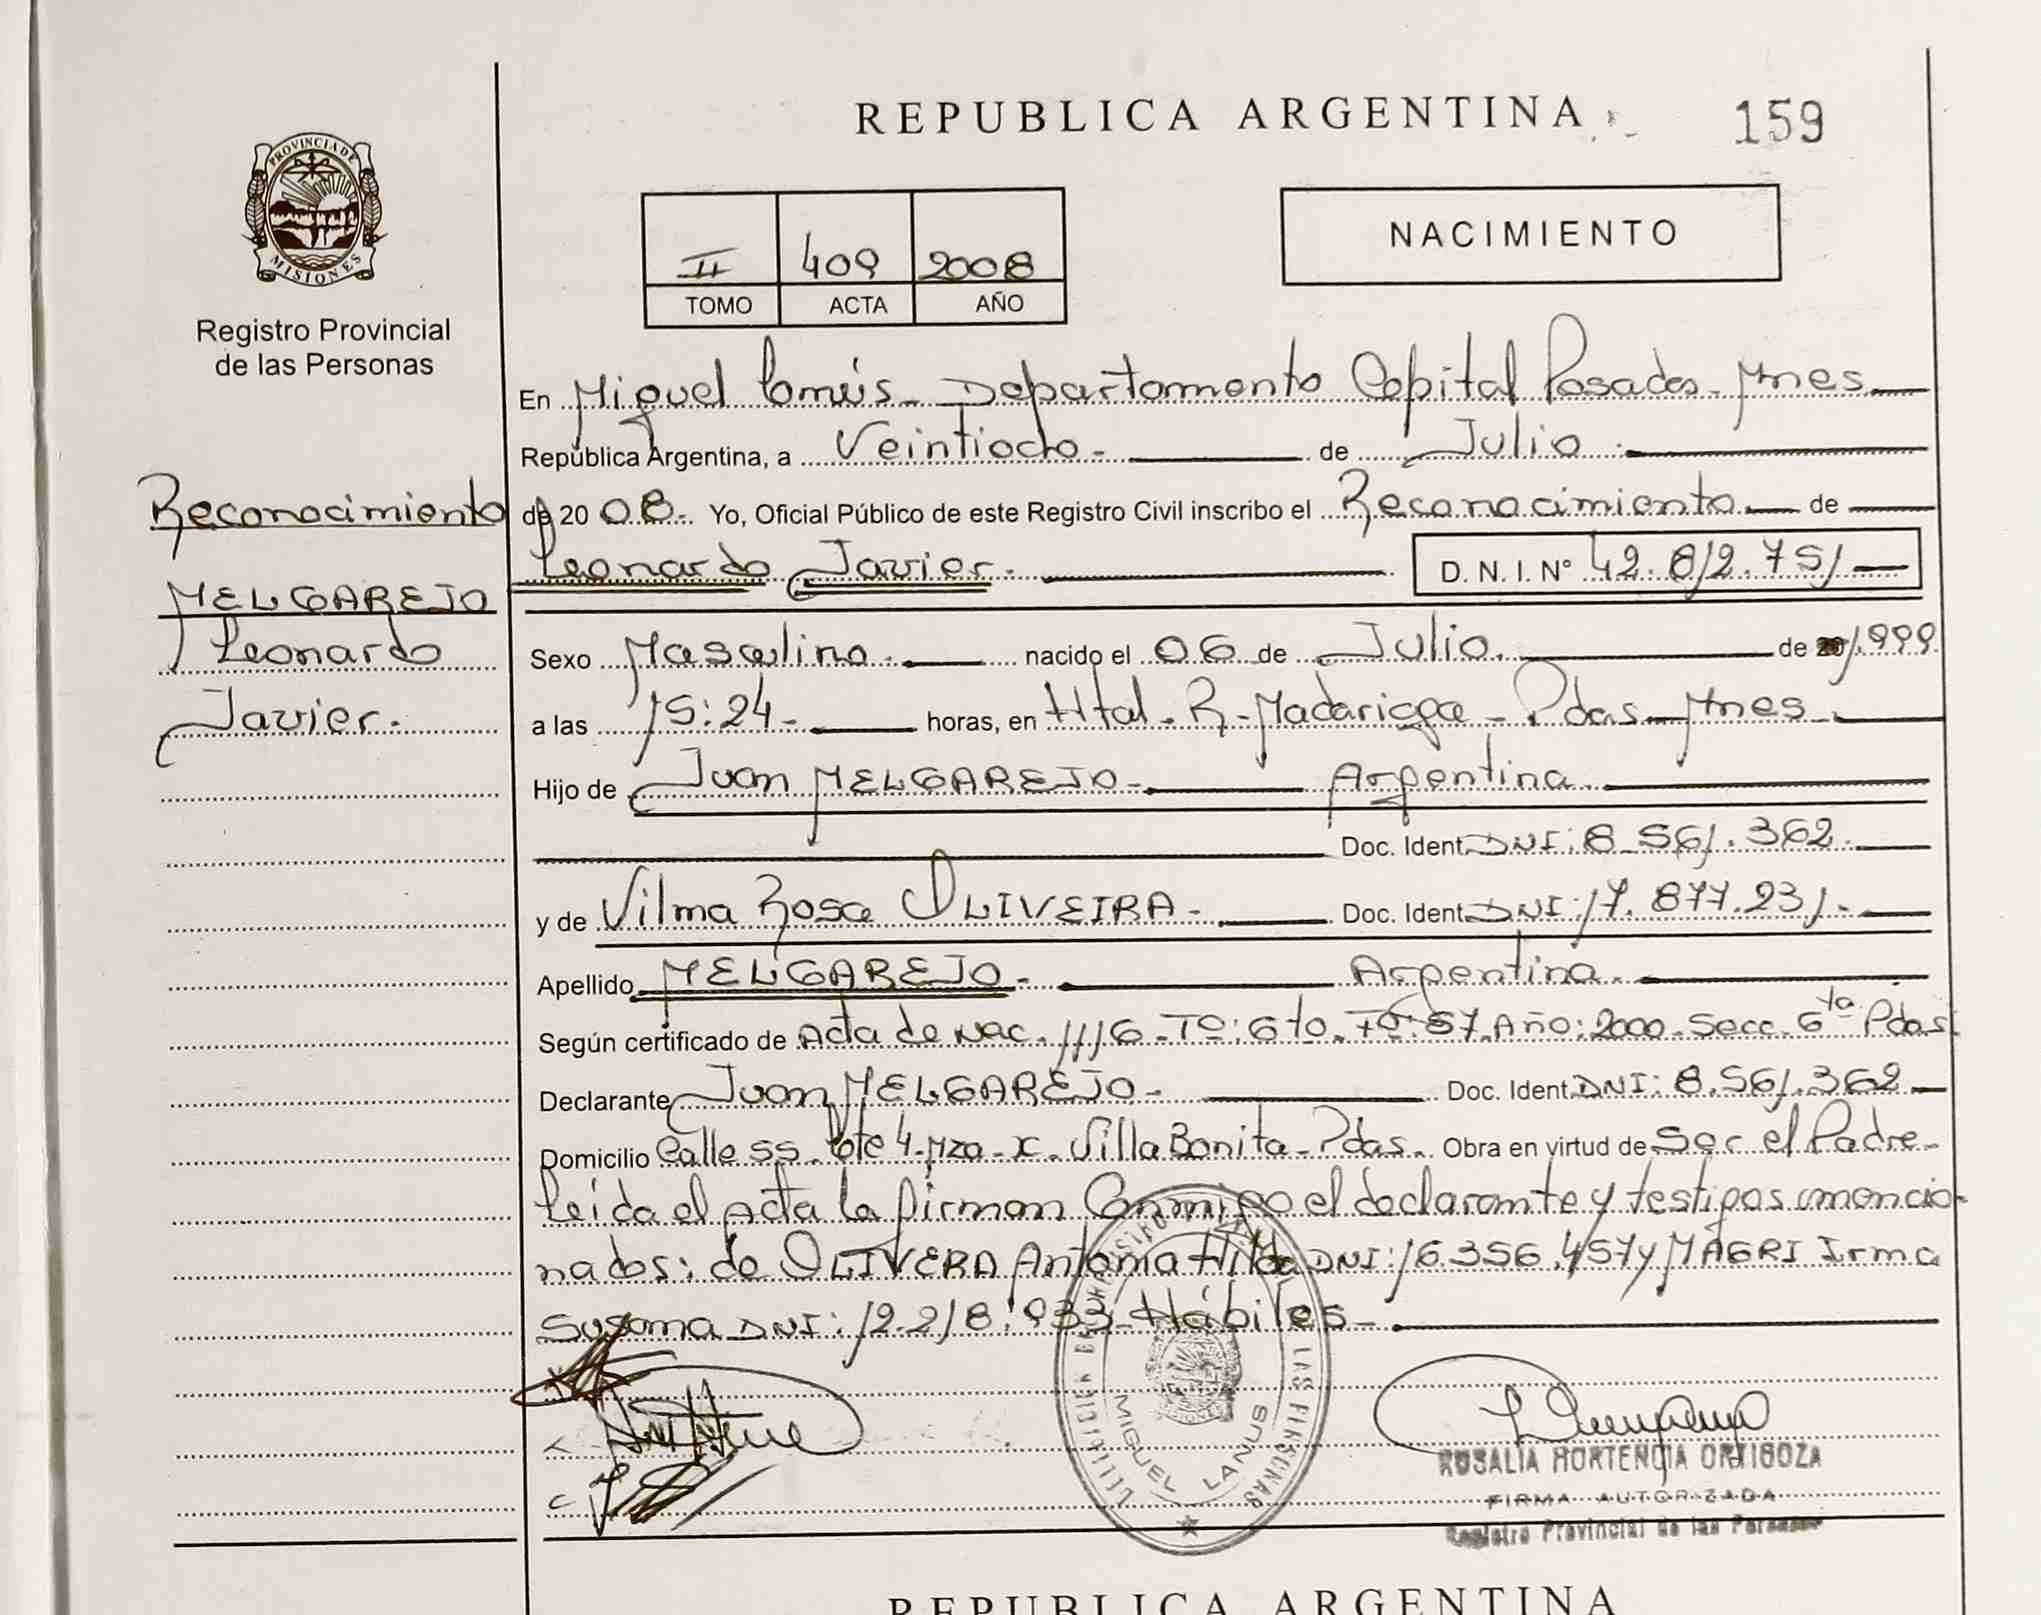 REPUBLICA ARGENTINA
159
PROVINCIA DE
MISIONES
Registro Provincial
de las Personas
II 409 2008
TOMO ACTA AÑO
NACIMIENTO
En Miguel Lanús - Departamento Capital Posadas - Mnes
República Argentina, a Veintiocho - de Julio
de 2008. Yo, Oficial Público de este Registro Civil inscribo el Reconocimiento de
Leonardo Javier. D. N. I. N° 42.812.751
Reconocimiento
MELGAREJO
Leonardo
Javier.
Sexo Masculino. nacido el 06 de Julio. de 1.999
a las 15:24 - horas, en Htal. R. Madariaga - Pdas - Mnes.
Hijo de Juan MELGAREJO - Argentina.
Doc. Ident. DNI: 8.561.362.
y de Vilma Rosa OLIVEIRA - Doc. Ident. DNI: 17.877.231.
Apellido MELGAREJO - Argentina.
Según certificado de Acta de Nac. 1116 - T°: 6to. F°: 57. Año: 2000 - Secc. 6ta Pdas
Declarante Juan MELGAREJO - Doc. Ident. DNI: 8.561.362
Domicilio Calle 55. Lote 4 - Mza - X. Villa Bonita - Pdas. Obra en virtud de Ser el Padre -
Leída el Acta la firman Conmigo el declarante y testigos mencio-
nados: de OLIVERA Antonia Hilda DNI: 16.356.457 y MAGRI Irma
Susana DNI: 12.218.933 - Hábiles -
DELEGACION REGISTRO PROVINCIAL DE LAS PERSONAS
MIGUEL LANUS
ROSALIA HORTENCIA ORTIGOZA
FIRMA AUTORIZADA
Registro Provincial de las Personas
REPUBLICA ARGENTINA